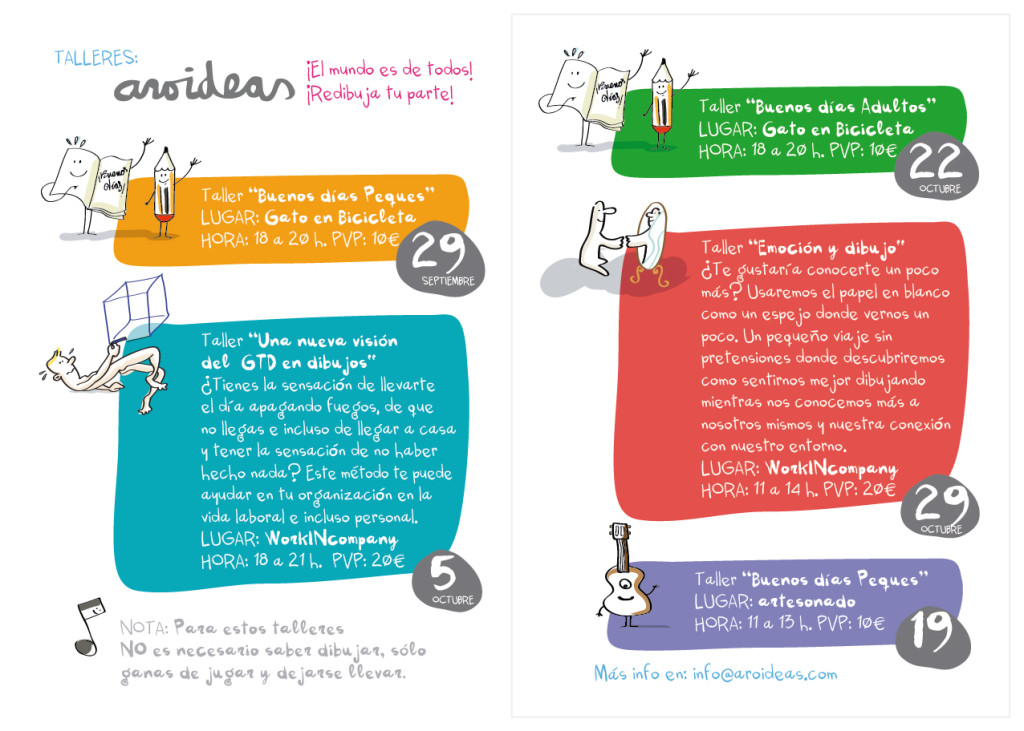 TALLERES:
aroideas
¡El mundo es de todos!
¡Redibuja tu parte!
¡Buenos
días!
Taller "Buenos días Peques"
LUGAR: Gato en Bicicleta
HORA: 18 a 20 h. PVP: 10€
29
SEPTIEMBRE
Taller "Una nueva visión
del GTD en dibujos"
¿Tienes la sensación de llevarte
el día apagando fuegos, de que
no llegas e incluso de llegar a casa
y tener la sensación de no haber
hecho nada? Este método te puede
ayudar en tu organización en la
vida laboral e incluso personal.
LUGAR: WorkINcompany
HORA: 18 a 21 h. PVP: 20€
5
OCTUBRE
NOTA: Para estos talleres
NO es necesario saber dibujar, sólo
ganas de jugar y dejarse llevar.
¡Buenos
días!
Taller "Buenos días Adultos"
LUGAR: Gato en Bicicleta
HORA: 18 a 20 h. PVP: 10€
22
OCTUBRE
Taller "Emoción y dibujo"
¿Te gustaría conocerte un poco
más? Usaremos el papel en blanco
como un espejo donde vernos un
poco. Un pequeño viaje sin
pretensiones donde descubriremos
como sentirnos mejor dibujando
mientras nos conocemos más a
nosotros mismos y nuestra conexión
con nuestro entorno.
LUGAR: WorkINcompany
HORA: 11 a 14 h. PVP: 20€
29
OCTUBRE
Taller "Buenos días Peques"
LUGAR: artesonado
HORA: 11 a 13 h. PVP: 10€
19
Más info en: info@aroideas.com